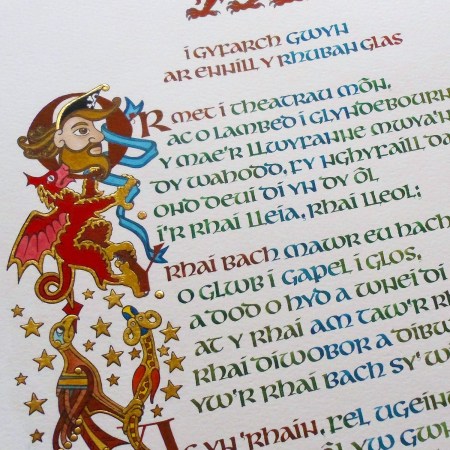 I GYFARCH GWYN
AR ENNILL Y RHUBAN GLAS
O'R MET I THEATRAU MÔN,
AC O LAMBED I GLYNDEBOURN
Y MAE'R LLWYFANNE MWYA'N
DY WAHODD, FY NGHYFAILL DA
OND DEUI DI YN DY ÔL
I'R RHAI LLEIA, RHAI LLEOL;
RHAI BACH MAWR EU HACH
O GLWB I GAPEL I GLOS,
A DOD O HYD A WNEI DI
AT Y RHAI AM TAW'R RH
RHAI DIWOBOR A DIBW
YW'R RHAI BACH SY' W
AC YN 'RHAIN, FEL UGEIN
YW